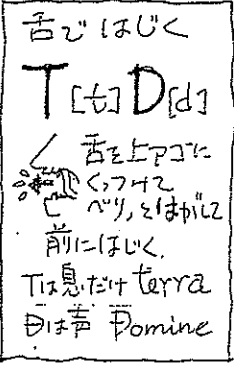 舌ではじく
T[t] D[d]
舌を上アゴに
くっつけて
ベリッとはがして
前にはじく.
Tは息だけ terra
Dは声 Domine